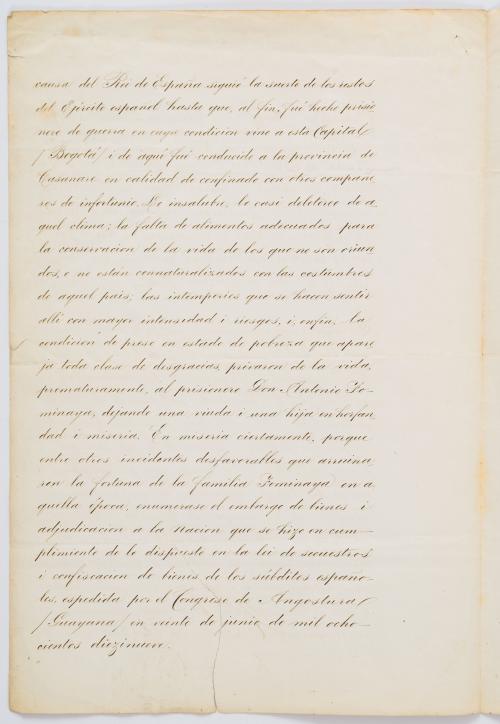 causa del Rei de España siguió la suerte de los restos
del Ejército español hasta que, al fin, fué hecho prisio
nero de guerra en cuya condicion vino a esta Capital
/Bogotá/ i de aquí fué conducido a la provincia de
Casanare en calidad de confinado con otros compañe
ros de infortunio. Lo insalubre, lo casi deletereo de a
quel clima; la falta de alimentos adecuados para
la conservacion de la vida de los que no son orian
dos, o no están connaturalizados con las costumbres
de aquel pais; las intemperies que se hacen sentir
allí con mayor intensidad i riesgos, i, en fin, la
condicion de preso en estado de pobreza que apare
ja toda clase de desgracias, privaron de la vida,
prematuramente, al prisionero Don Antonio Fo-
minaya, dejando una viuda i una hija en horfan
dad i miseria. En miseria ciertamente, porque
entre otros incidentes desfavorables que arruina
ron la fortuna de la familia Fominaya en a
quella época, enumerase el embargo de bienes i
adjudicacion a la Nacion que se hizo en cum-
plimiento de lo dispuesto en la lei de secuestros
i confiscacion de bienes de los súbditos españo-
les, espedida por el Congreso de Angostura
/Guayana/ en veinte de junio de mil ocho-
cientos diezinueve.